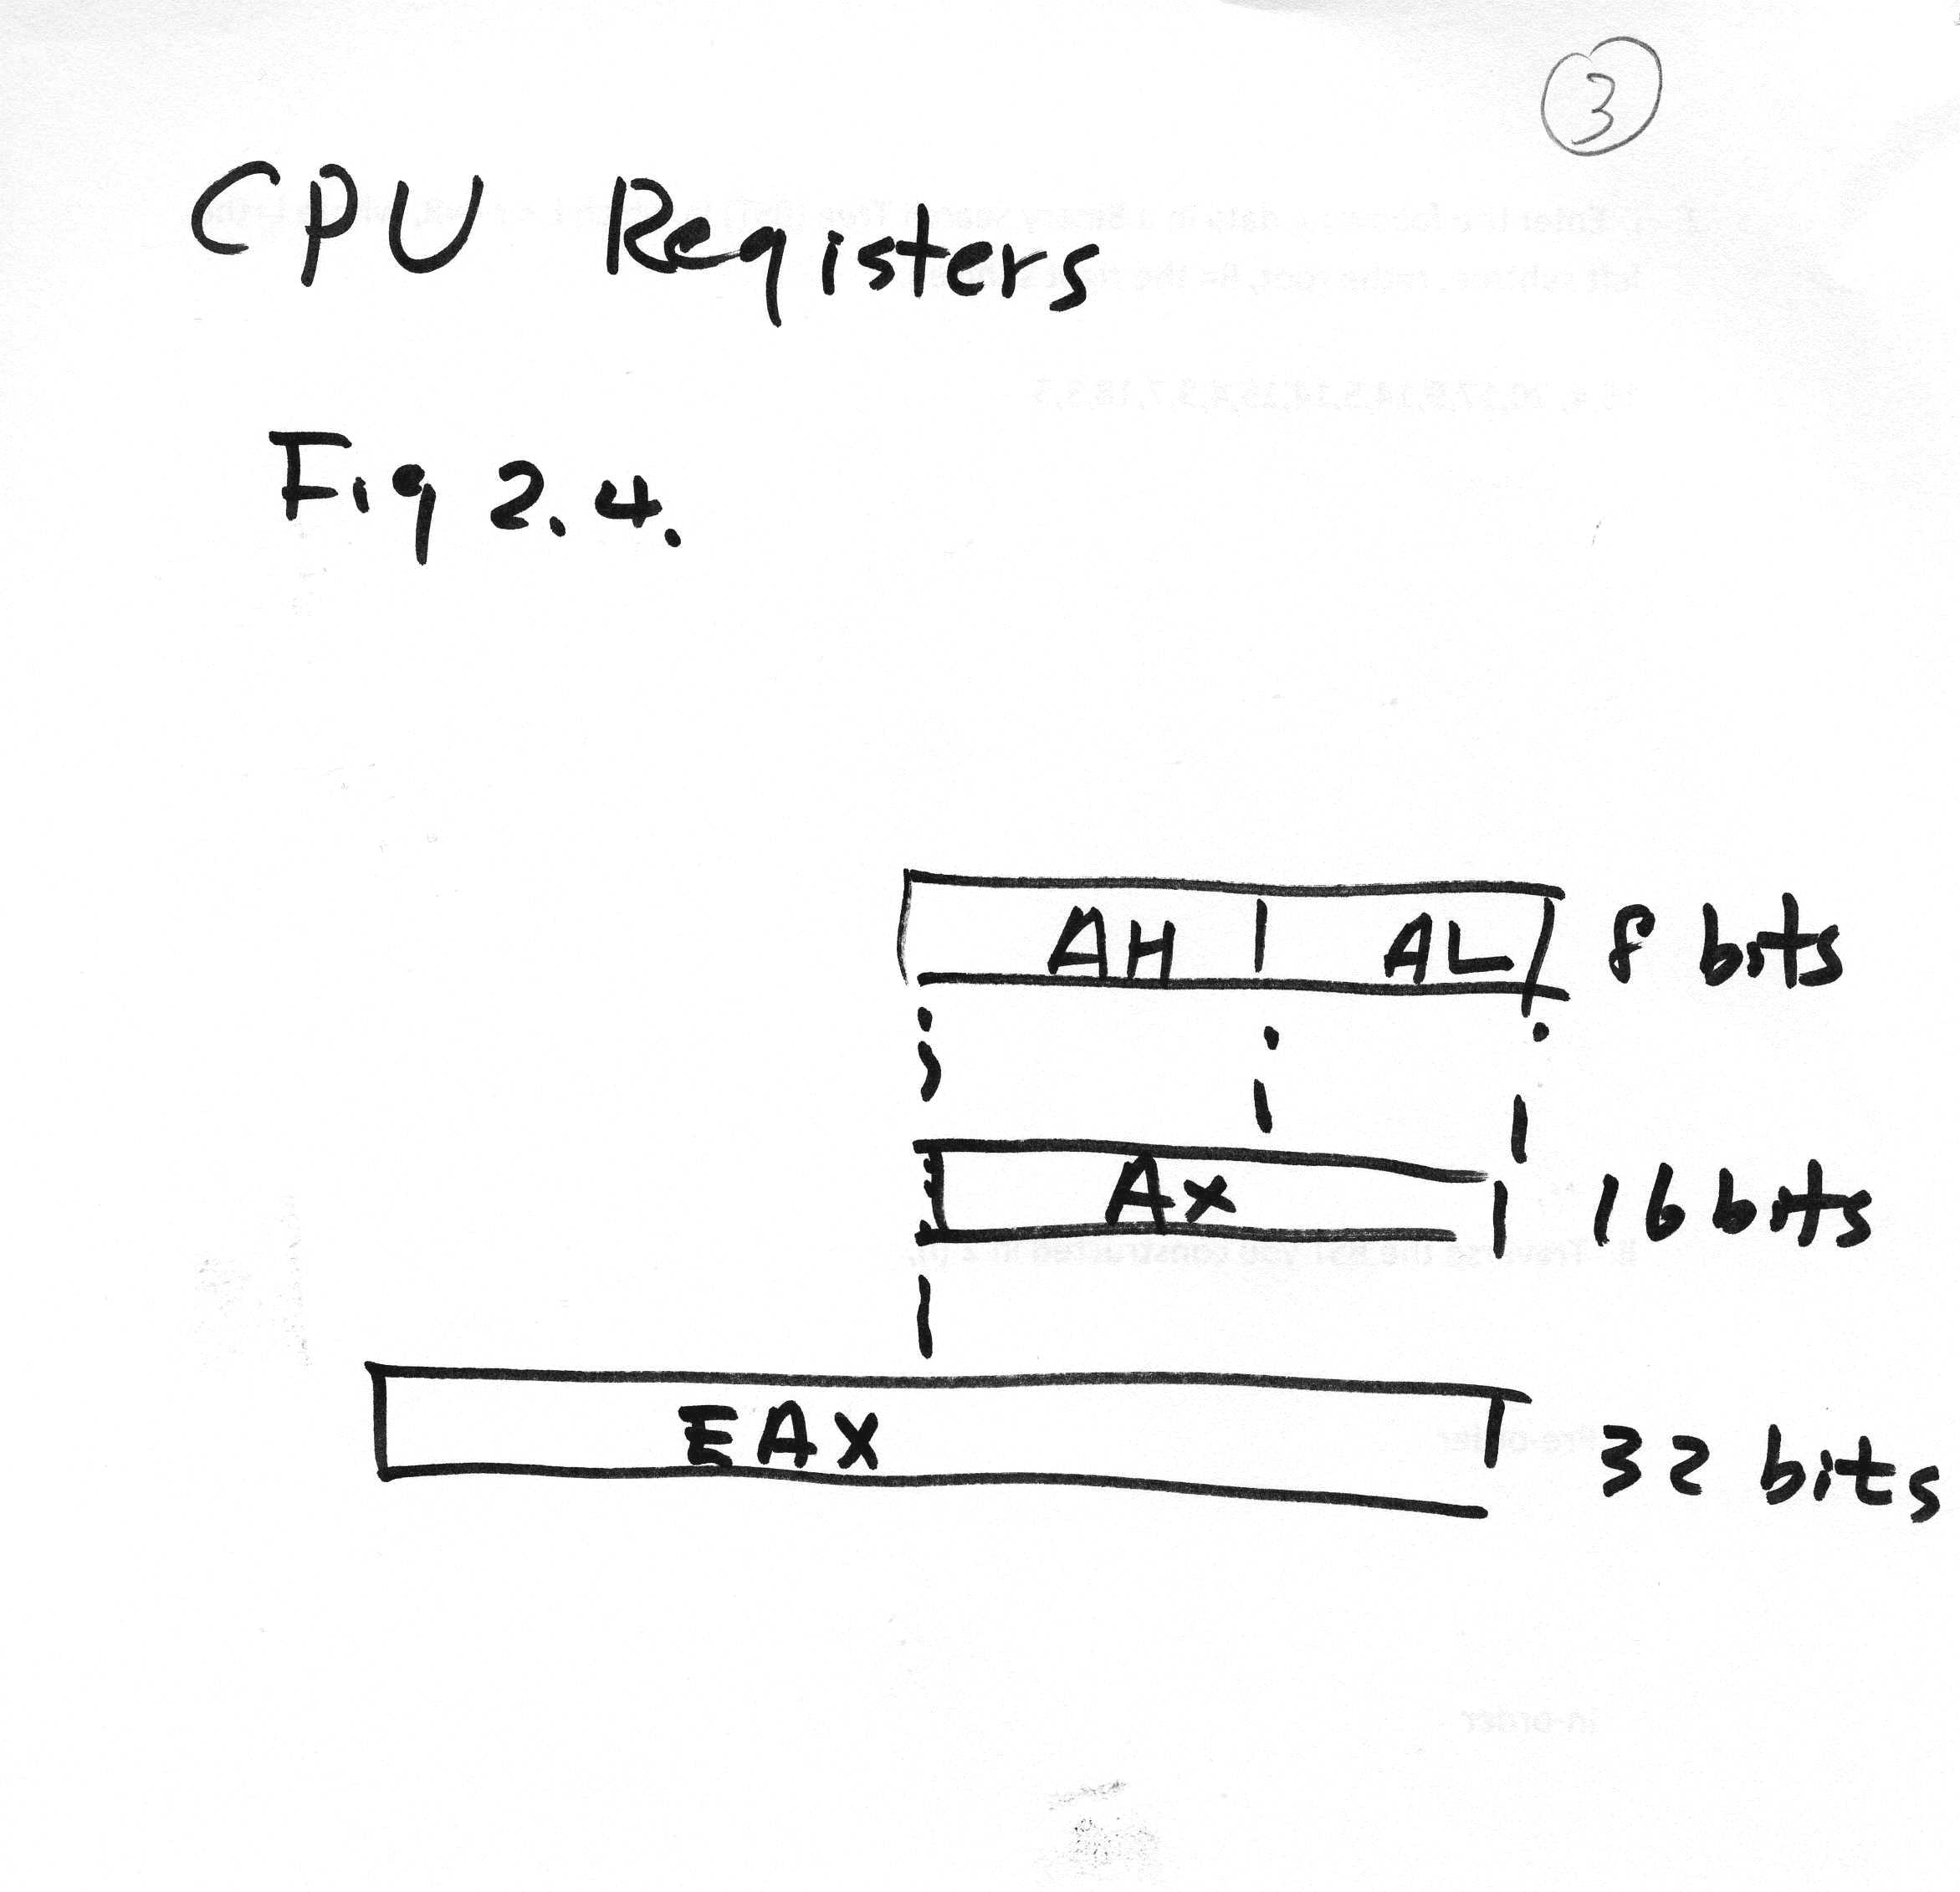 3
CPU Registers
Fig 2.4.
AH AL 8 bits
AX 16 bits
EAX 32 bits